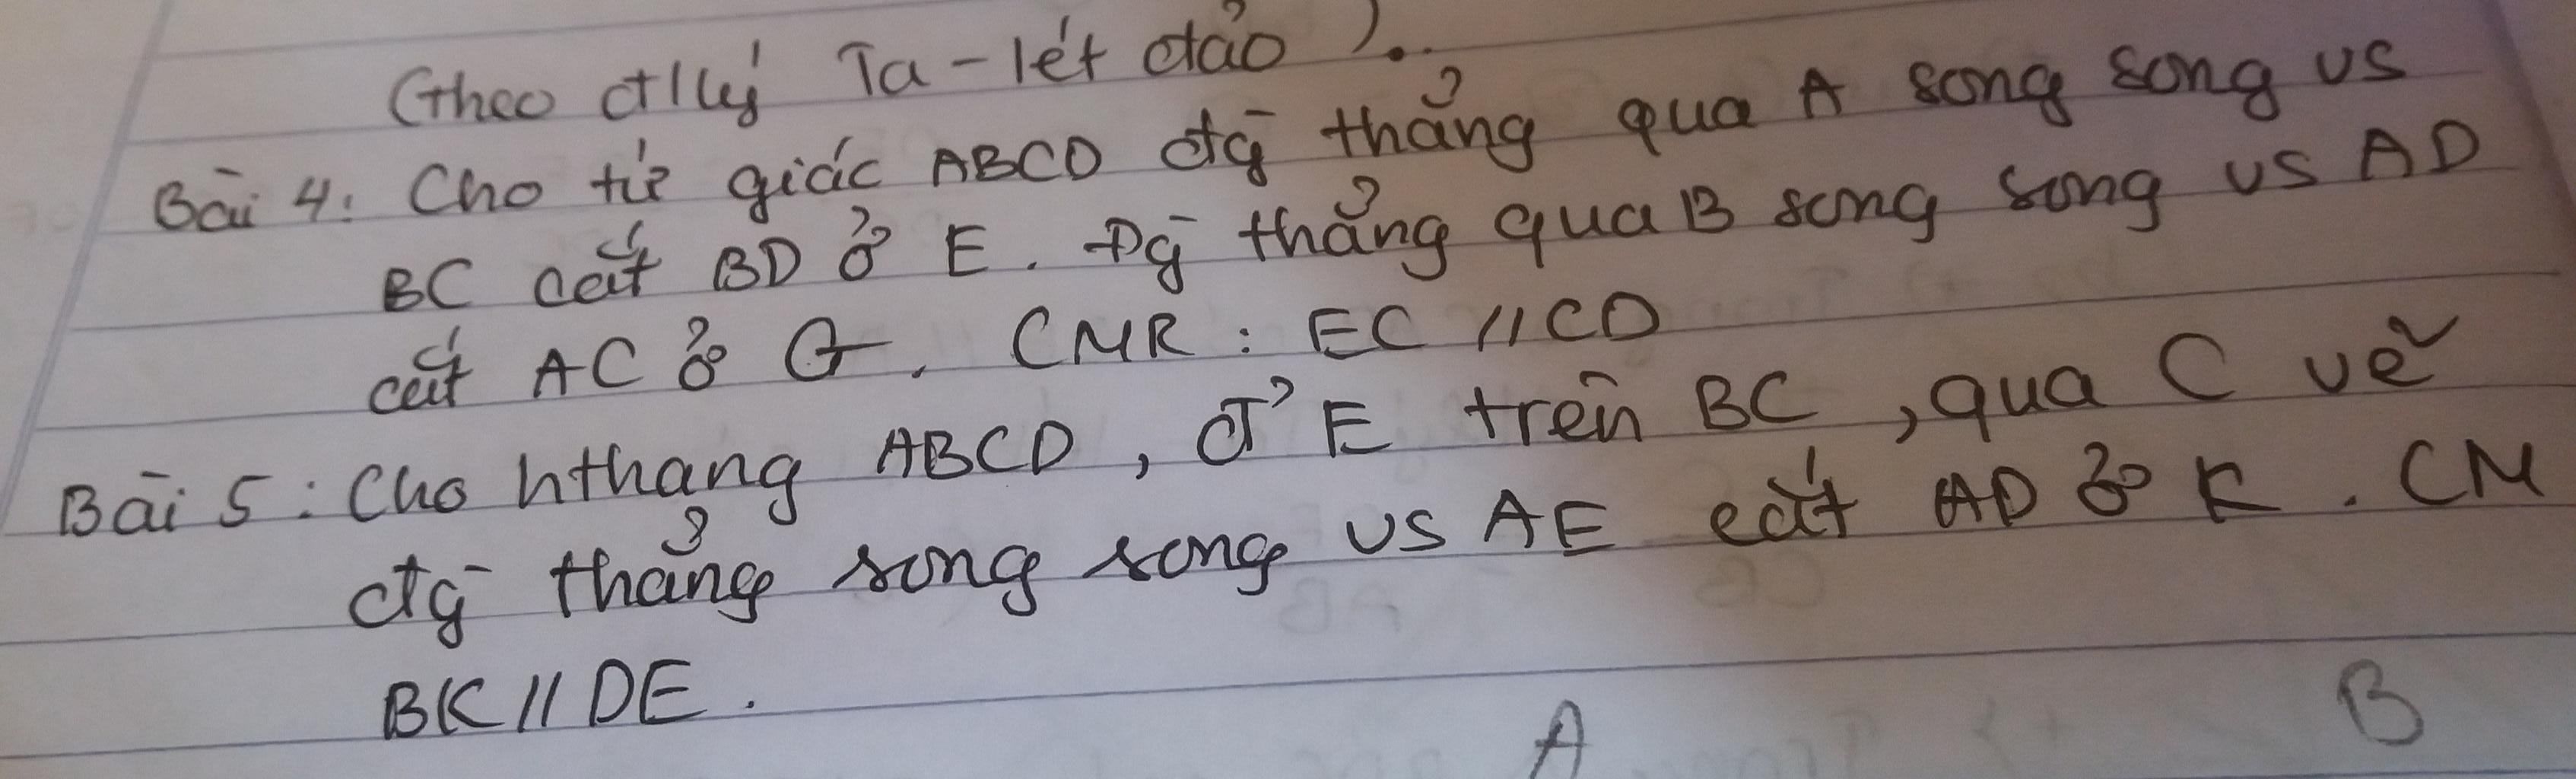 (theo đ/lý Ta-lét đảo)..
Bài 4: Cho tứ giác ABCD đg̅ thẳng qua A song song vs
BC cắt BD ở E. Đg̅ thẳng qua B song song vs AD
cắt AC ở G. CMR: EC // CD
Bài 5: Cho hthang ABCD, đ' E trên BC, qua C vẽ
đg̅ thẳng song song vs AE cắt AD ở K. CM
BK // DE.
A B